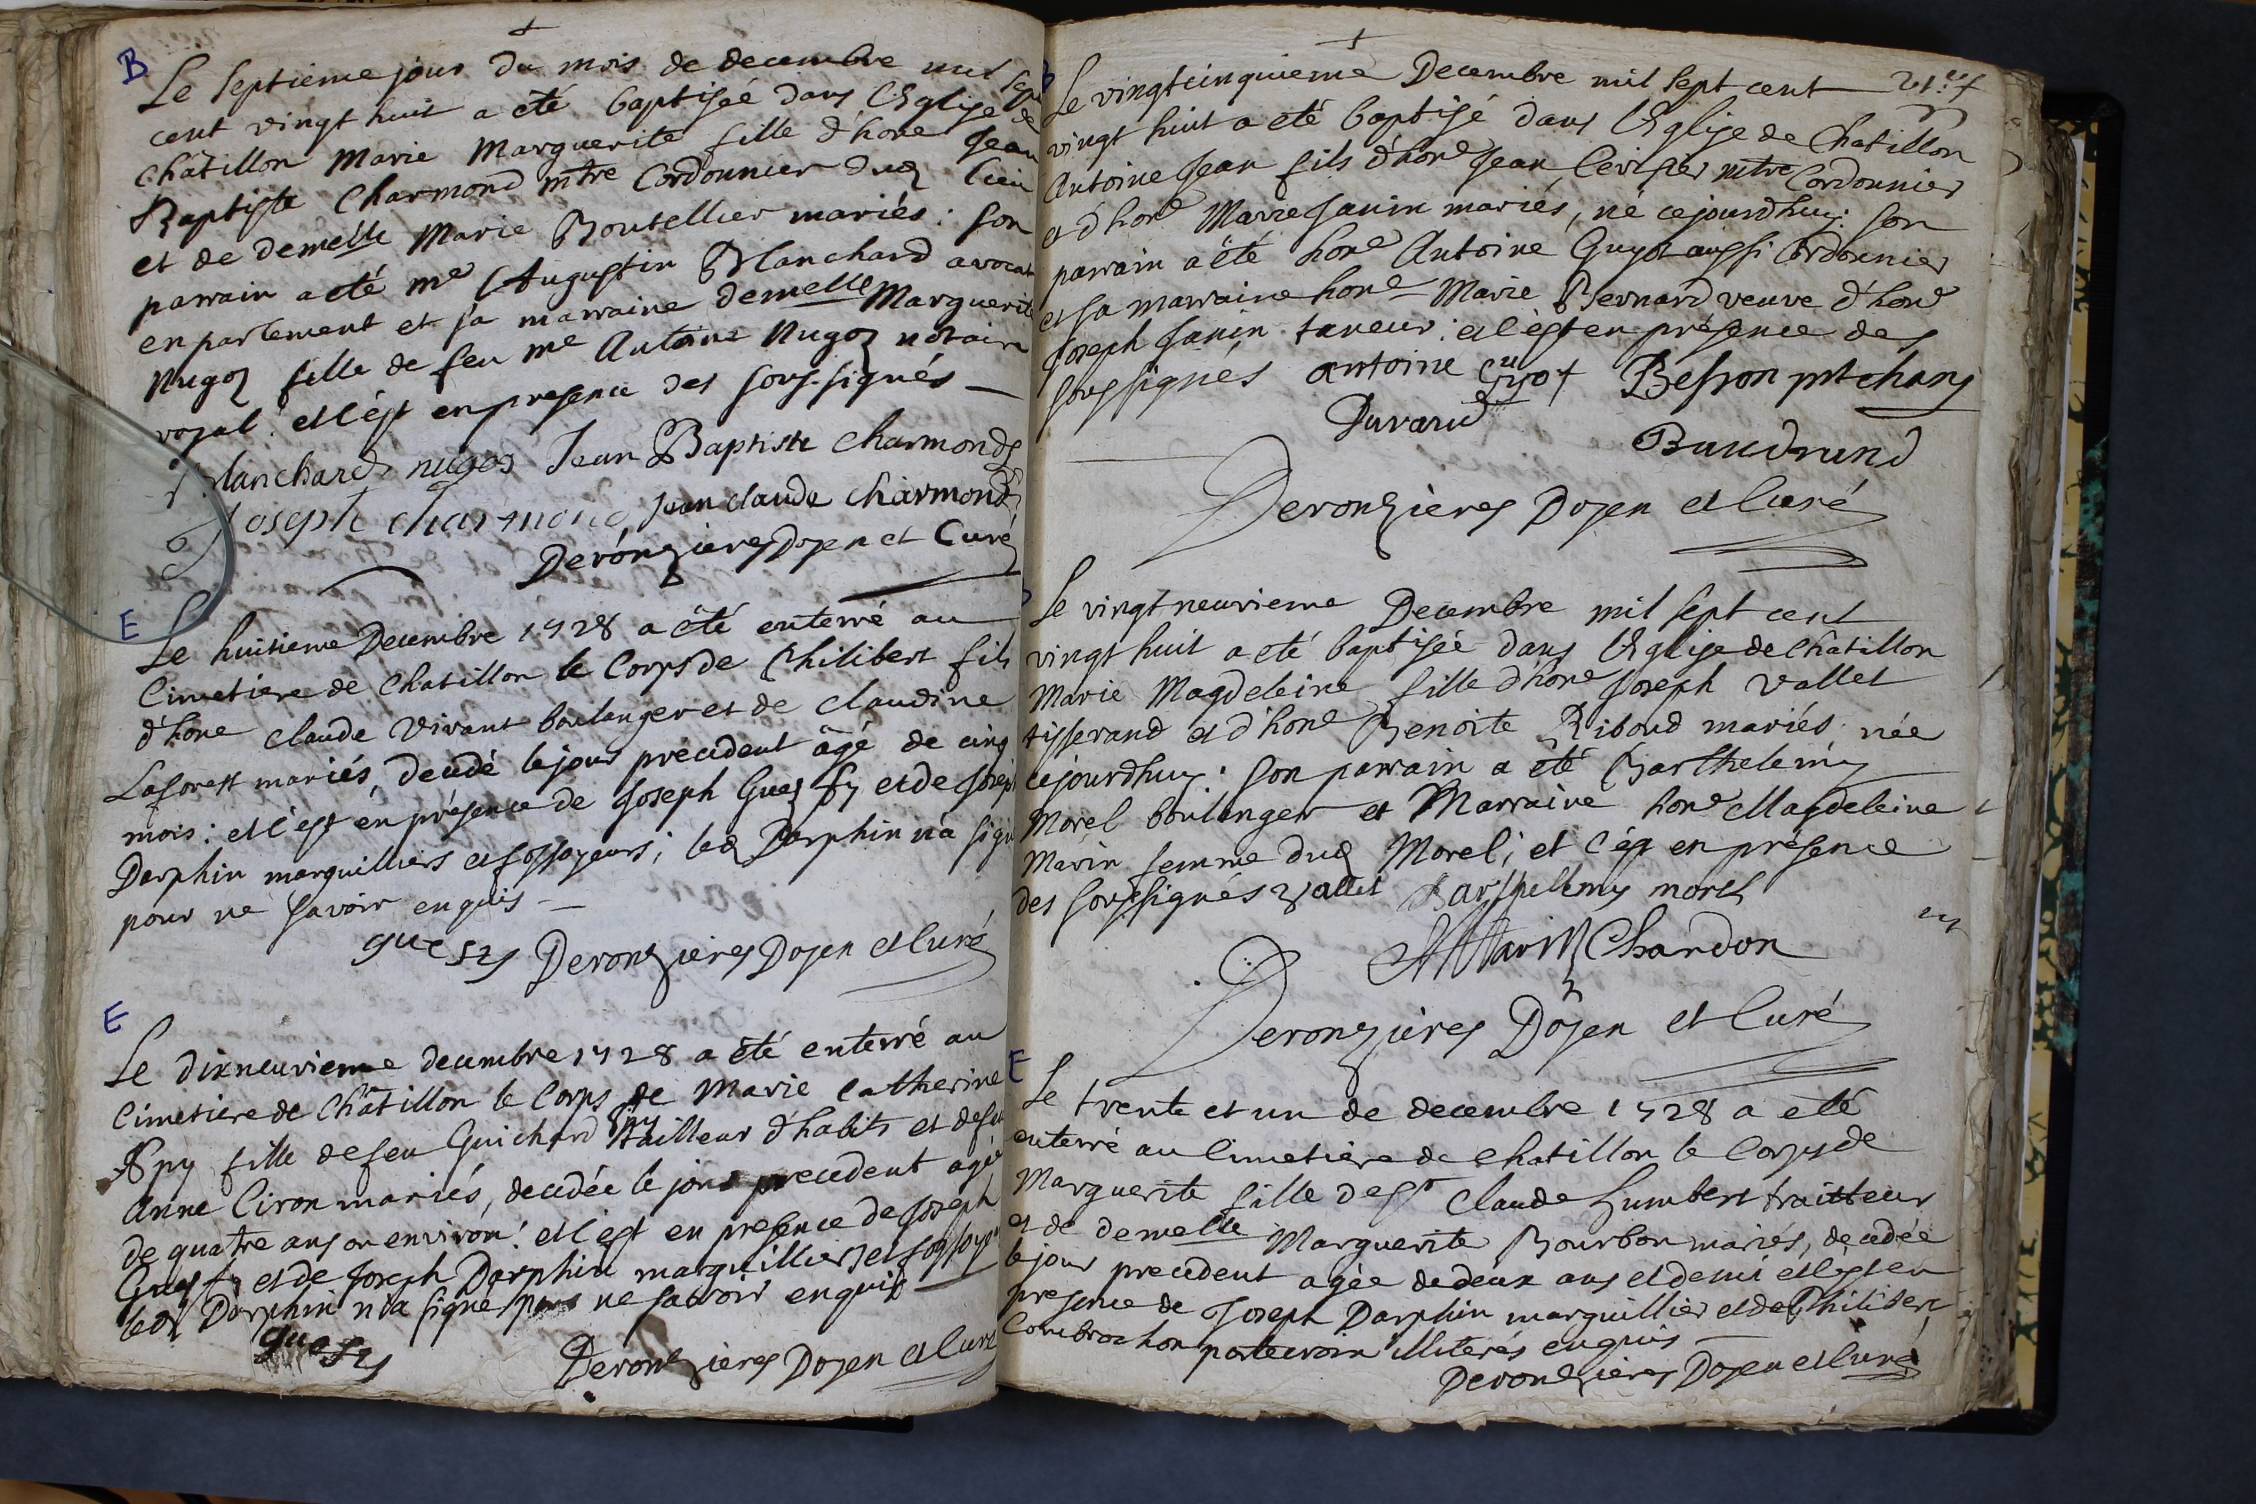 B
Le septieme jour du mois de decembre mil sept
cent vingt huit a eté baptisée dans l'Eglise de
châtillon Marie Marguerite fille d'hone Jean
Baptiste Charmond mtre Cordonnier dud lieu
et de demelle Marie Boutellier mariés : son
parrain a eté me Augustin Blanchard avocat
en parlement et sa marraine demelle Marguerite
Nugoz fille de feu me Antoine Nugoz notaire
royal : et c'est en presence des sous-signés
Blanchard nugoz Jean Baptiste charmond
Joseph charmond jean claude charmond
Deronzieres Doyen et Curé
E
Le huitieme Decembre 1728 a été enterré au
Cimetiere de Chatillon le Corps de Philibert fils
d'hone claude Vivant boulanger et de claudine
Laforest mariés, decedé le jour précedent âgé de cinq
mois : et c'est en présence de Joseph Guezsy et de Joseph
Darphin marguilliers et fossoyeurs ; led Darphin n'a signé
pour ne savoir enquis
guessy Deronzieres Doyen et Curé
E
Le dixneuvieme decembre 1728 a été enterré au
Cimetiere de Châtillon le Corps de Marie Catherine
Spy fille de feu Guichard Spy tailleur d'habits et de feu
Anne Ciron mariés, decedée le jour precedent agée
de quatre ans ou environ : et c'est en presence de Joseph
Guessy et de Joseph Darphin marguilliers et fossoyeurs
led Darphin n'a signé pour ne savoir enquis
guessy Deronzieres Doyen et Curé
Le vingt cinquieme Decembre mil sept cent
vingt huit a eté baptisé dans l'Eglise de Chatillon
Antoine Jean fils d'hone Jean Cerisier mtre Cordonnier
et d'hone Marie Janin mariés, né cejourdhuy : son
parrain a été hone Antoine Guyot aussi Cordonnier
et sa marraine hone Marie Bernard veuve d'hone
Joseph Janin taneur : et c'est en présence des
sous signés antoine Guyot Besson pbt chany
Duvand Baudrand
Deronzieres Doyen et Curé
Le vingt neuvieme Decembre mil sept cent
vingt huit a eté baptisée dans l'Eglise de Chatillon
Marie Magdeleine fille d'hone Joseph Vallet
tisserand et d'hone Benoite Riboud mariés née
cejourdhuy : son parrain a été Barthelemy
Morel boulanger et Marraine hone Magdeleine
Marin femme dud Morel ; et c'est en présence
des soussignés Vallet Barthellemy morel
M Marin Chardon
Deronzieres Doyen et Curé
E
Le trente et un de decembre 1728 a eté
enterré au Cimetiere de Chatillon le Corps de
Marguerite fille de Sr Claude humbert traitteur
et de demelle Marguerite Bourbon mariés, decedée
le jour precedent agée de deux ans et demi et c'est en
presence de Joseph Darphin marguillier et de Philibert
Combrochon illiterés enquis
Deronzieres Doyen et Curé